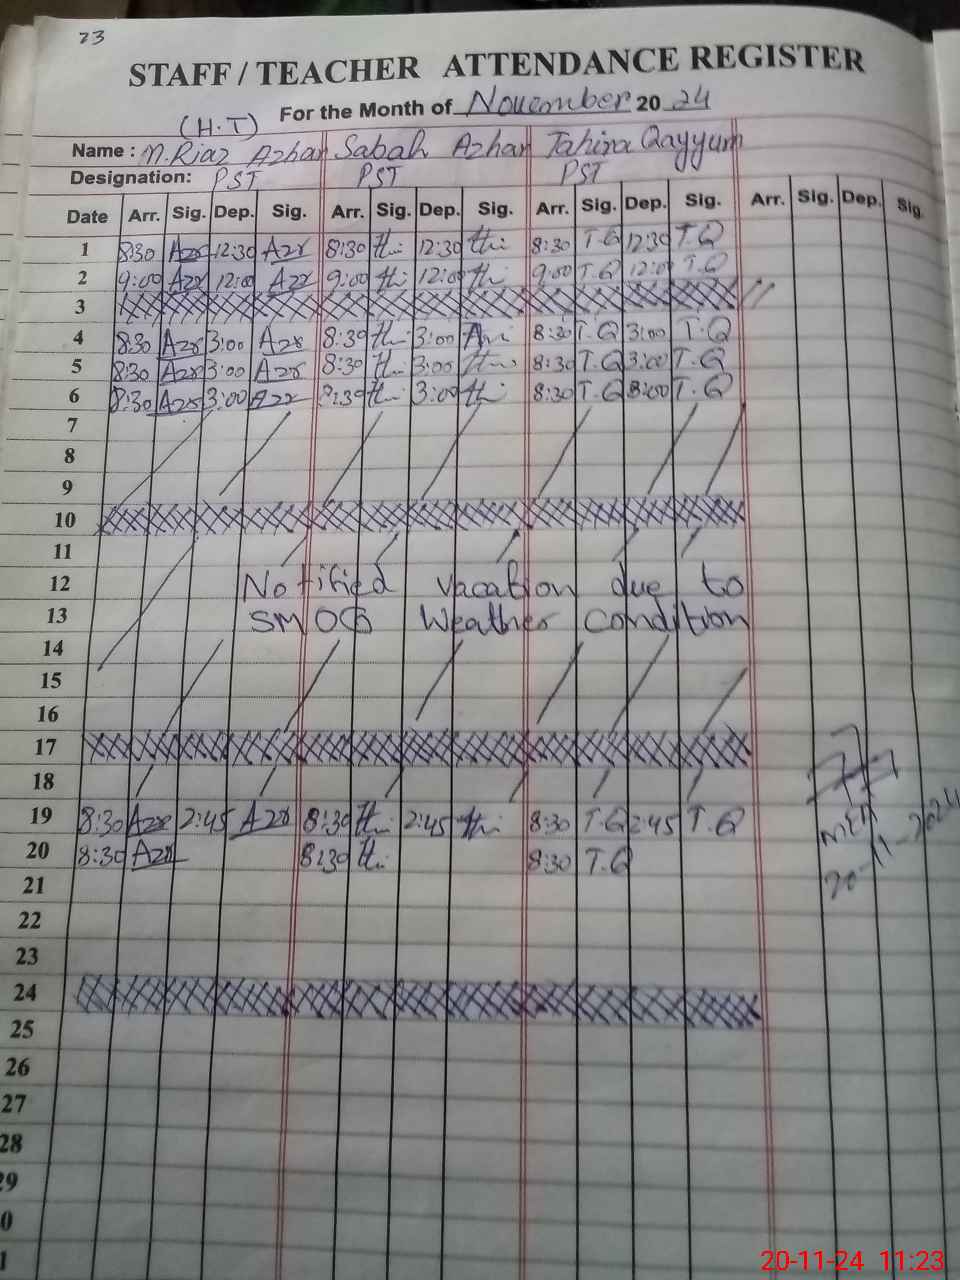 73
STAFF / TEACHER ATTENDANCE REGISTER
For the Month of November 20 24
(H.T)
Name : M. Riaz Azhar Sabah Azhar Tahira Qayyum
Designation: PST PST PST
Date Arr. Sig. Dep. Sig. Arr. Sig. Dep. Sig. Arr. Sig. Dep. Sig. Arr. Sig. Dep. Sig.
1 8:30 12:30 8:30 12:30 8:30 T.Q 12:30 T.Q
2 9:00 12:00 9:00 12:00 9:00 T.Q 12:00 T.Q
3
4 8:30 3:00 8:30 3:00 8:30 T.Q 3:00 T.Q
5 8:30 3:00 8:30 3:00 8:30 T.Q 3:00 T.Q
6 8:30 3:00 8:30 3:00 8:30 T.Q 3:00 T.Q
7
8
9
10
11
12 Notified vacation due to
13 SMOG Weather condition
14
15
16
17
18
19 8:30 2:45 8:30 2:45 8:30 T.Q 2:45 T.Q
20 8:30 8:30 8:30 T.Q
MEA
20-11-2024
21
22
23
24
25
26
27
28
29
0
1
20-11-24 11:23